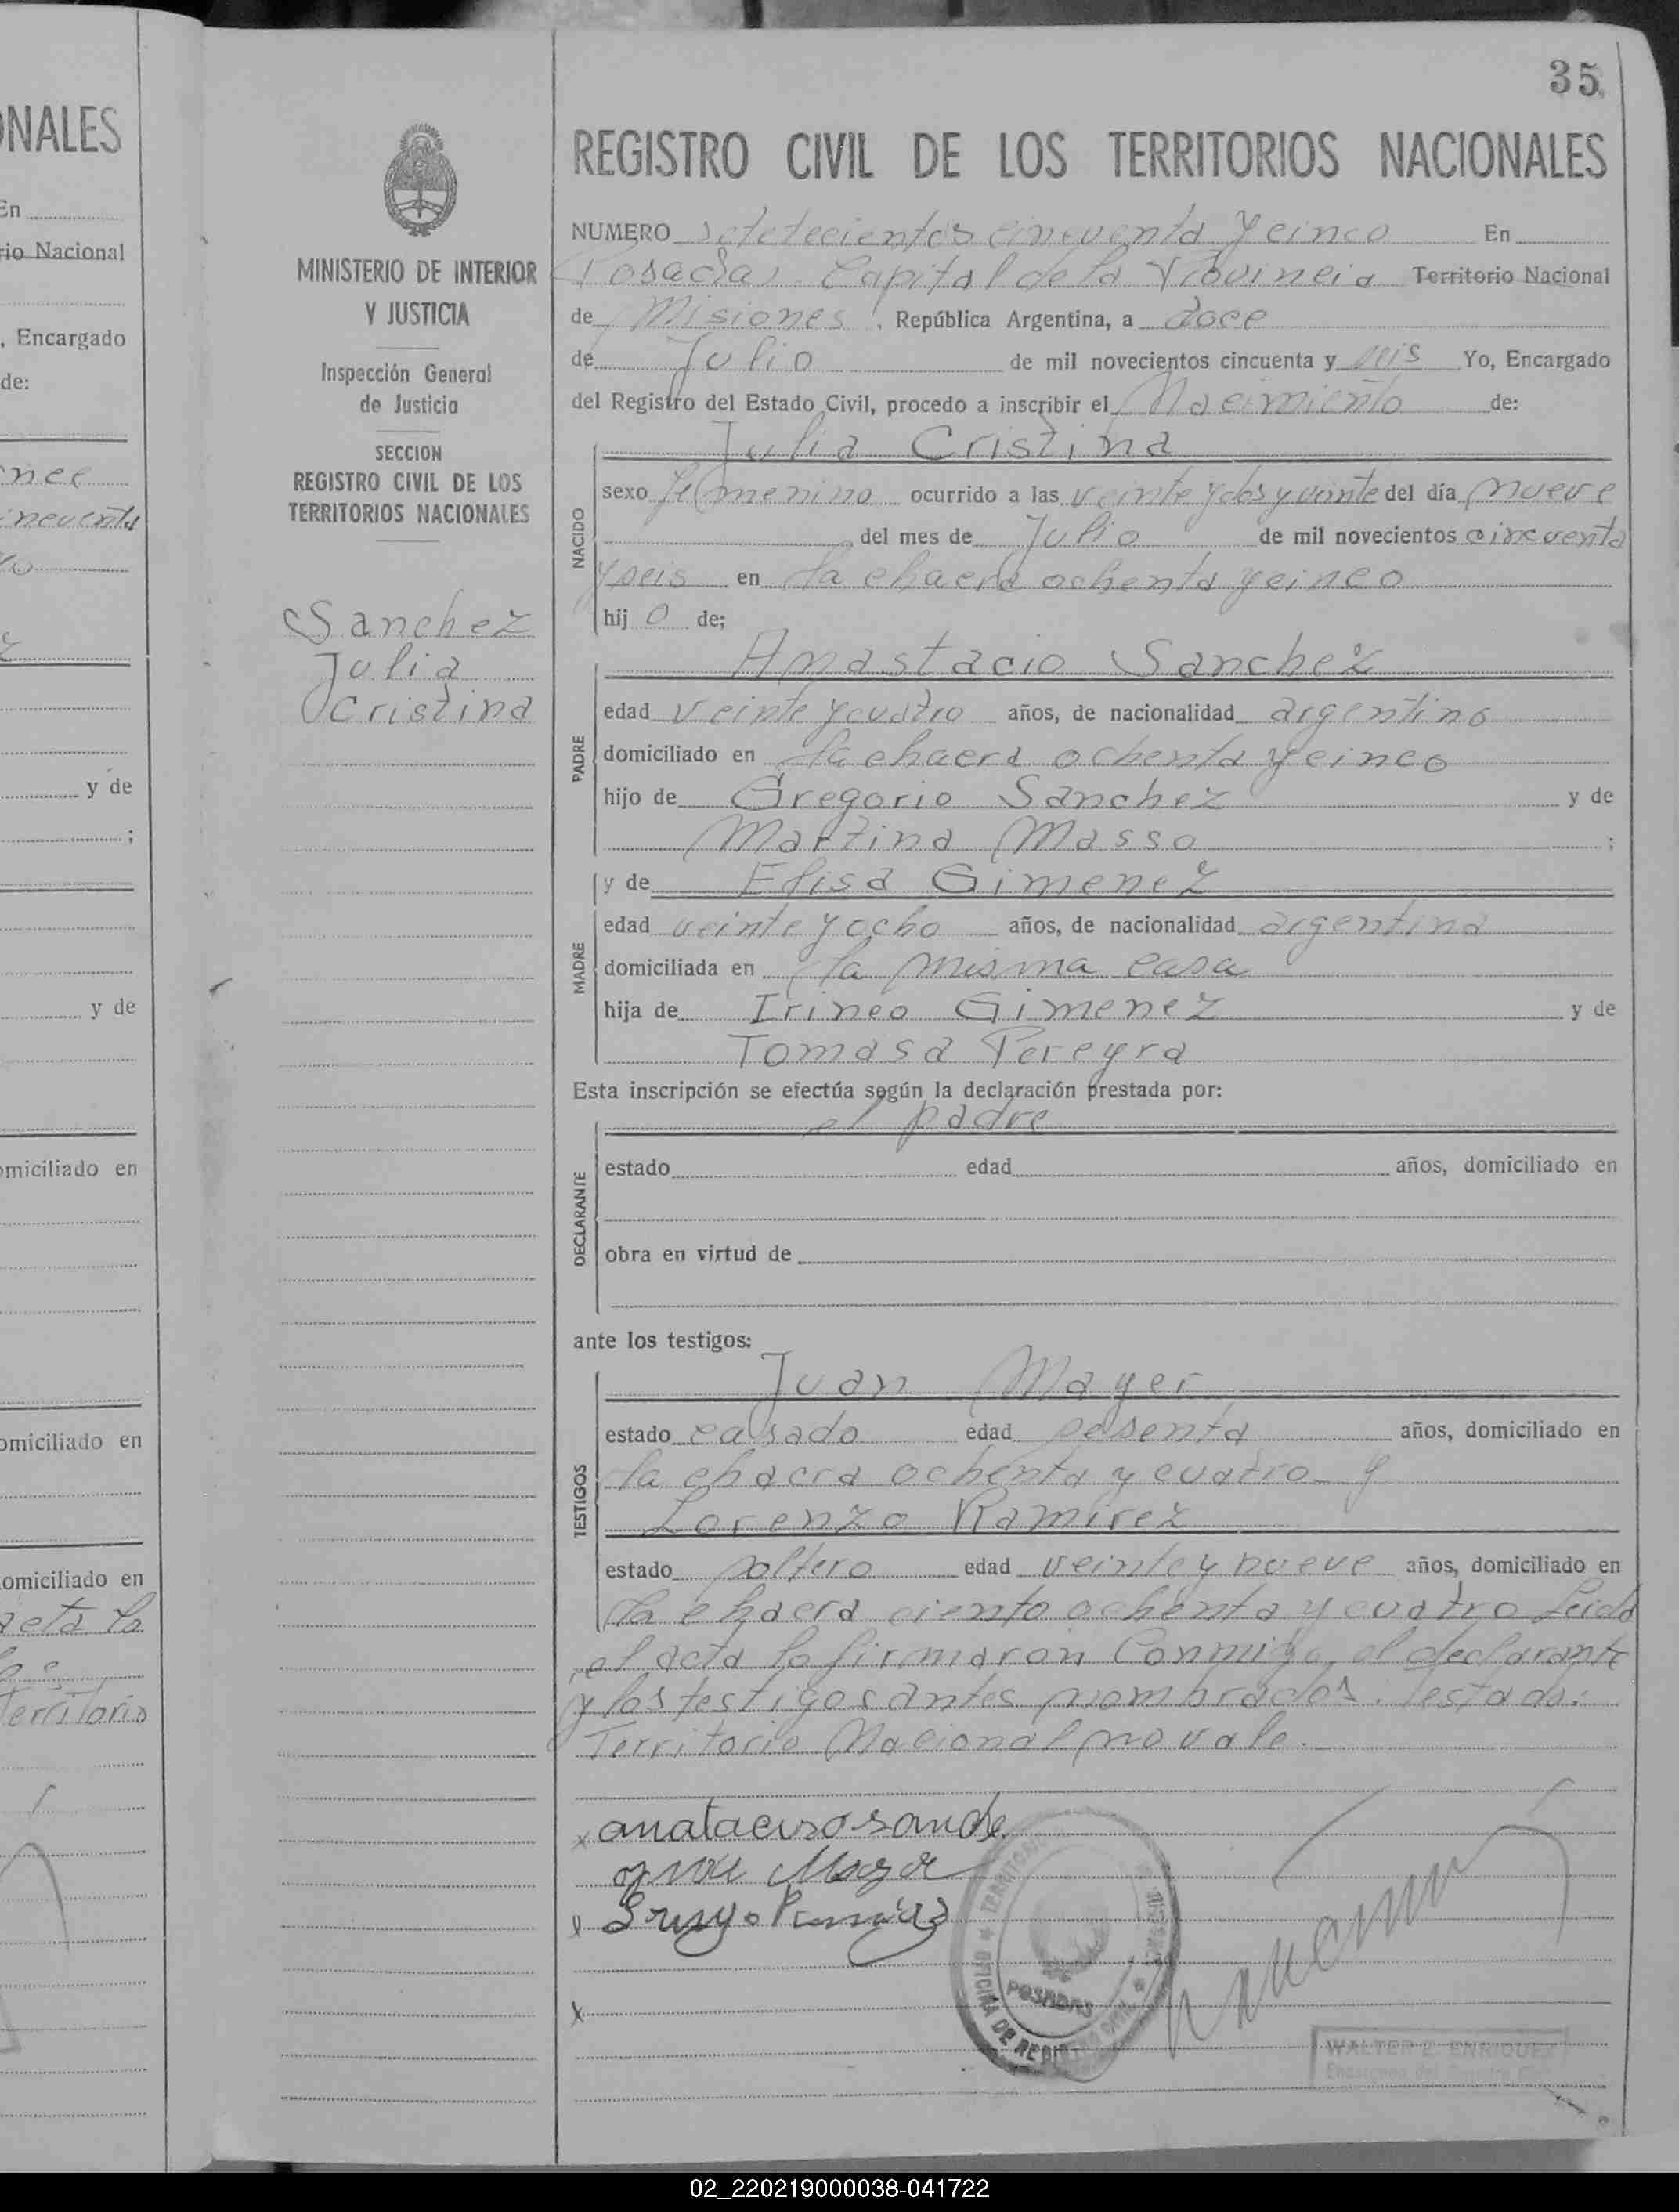 NALES
En
rio Nacional
, Encargado
de:
y de
;
y de
miciliado en
omiciliado en
omiciliado en
acta lo
Territorio
MINISTERIO DE INTERIOR
Y JUSTICIA
Inspección General
de Justicia
SECCION
REGISTRO CIVIL DE LOS
TERRITORIOS NACIONALES
Sanchez
Julia
Cristina
35
REGISTRO CIVIL DE LOS TERRITORIOS NACIONALES
NUMERO setetecientos cincuenta y cinco En
Posadas Capital de la Provincia Territorio Nacional
de Misiones, República Argentina, a doce
de Julio de mil novecientos cincuenta y seis Yo, Encargado
del Registro del Estado Civil, procedo a inscribir el Nacimiento de:
Julia Cristina
NACIDO
sexo femenino ocurrido a las veinte y dos y veinte del día nueve
del mes de Julio de mil novecientos cincuenta
y seis en la chacra ochenta y cinco
hij o de;
Anastacio Sanchez
PADRE
edad veinte y cuatro años, de nacionalidad argentino
domiciliado en la chacra ochenta y cinco
hijo de Gregorio Sanchez y de
Martina Masso ;
y de Elisa Gimenez
MADRE
edad veinte y ocho años, de nacionalidad argentina
domiciliada en la misma casa
hija de Irineo Gimenez y de
Tomasa Pereyra
Esta inscripción se efectúa según la declaración prestada por:
el padre
DECLARANTE
estado edad años, domiciliado en
obra en virtud de
ante los testigos:
Juan Mayer
TESTIGOS
estado casado edad sesenta años, domiciliado en
la chacra ochenta y cuatro y
Lorenzo Ramirez
estado soltero edad veinte y nueve años, domiciliado en
la chacra ciento ochenta y cuatro Leida
el acta la firmaron Conmigo, el declarante
y los testigos antes nombrados. Testado:
Territorio Nacional no vale.
x anatacio sanche
Mayer
x
OFICINA DE REGISTRO
POSADAS
WALTER E. ENRIQUEZ
Encargado del Registro
02_220219000038-041722